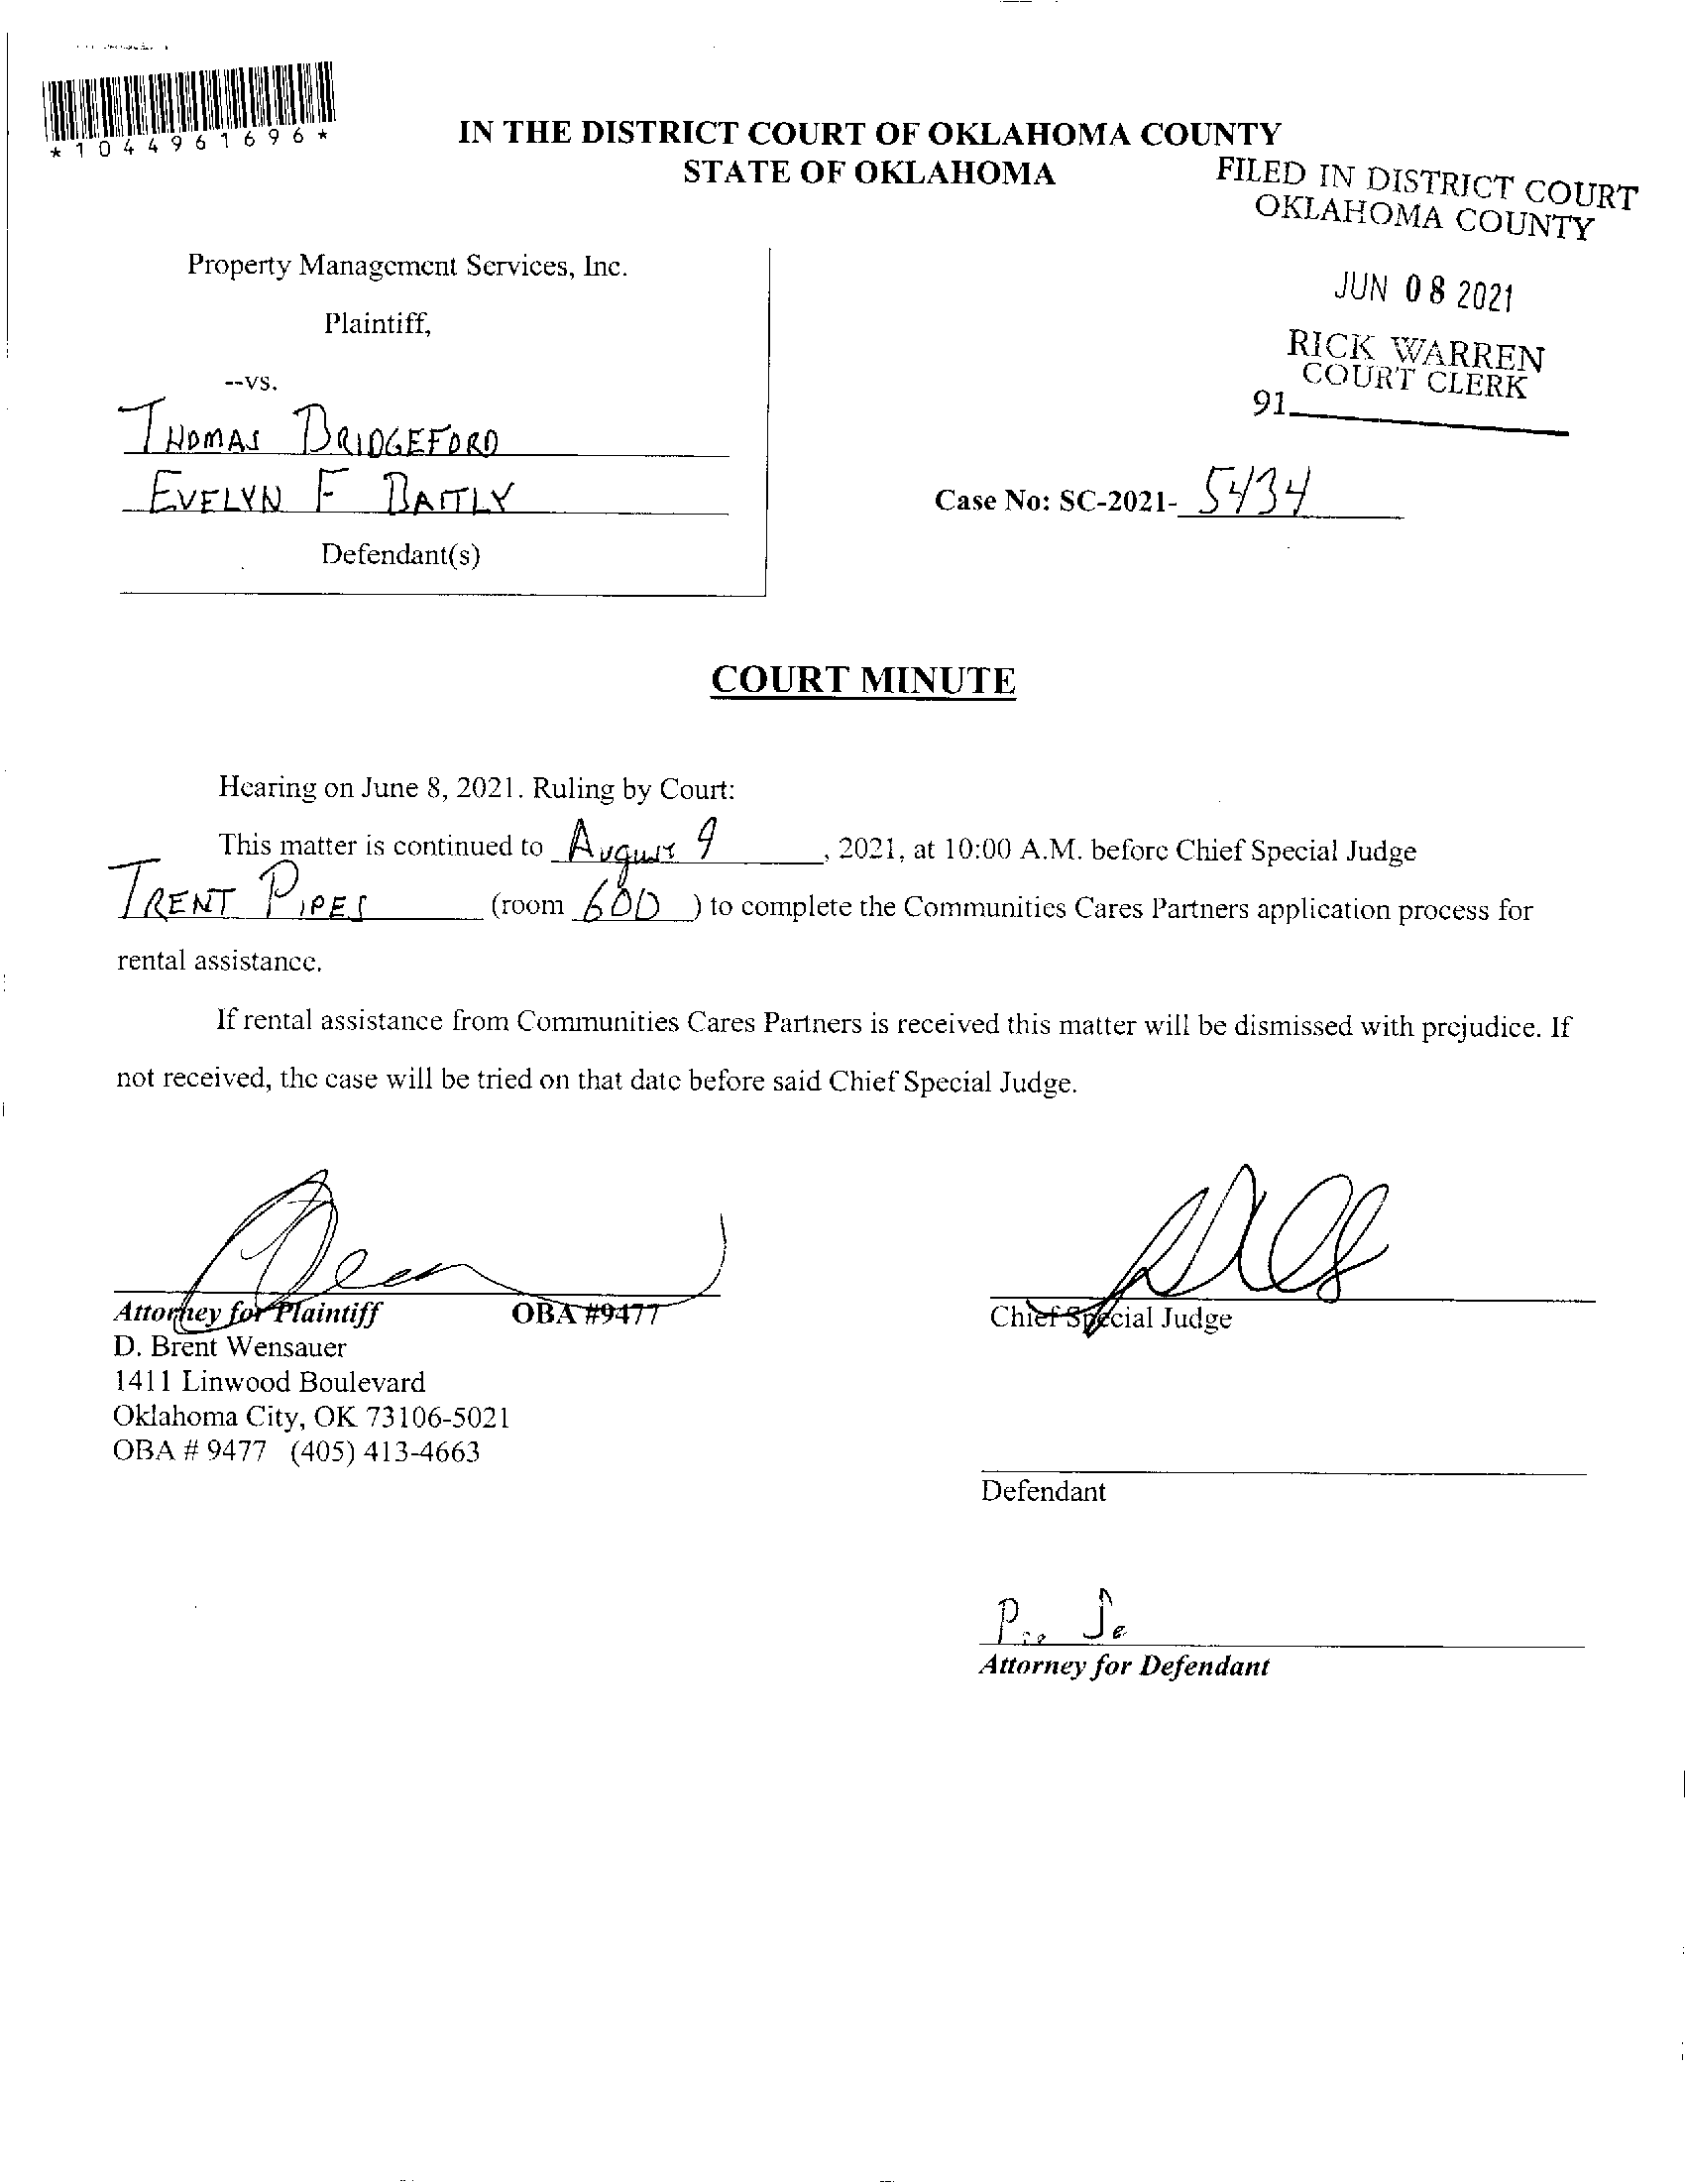 *1044961696*
IN THE DISTRICT COURT OF OKLAHOMA COUNTY
STATE OF OKLAHOMA
FILED IN DISTRICT COURT
OKLAHOMA COUNTY
JUN 08 2021
RICK WARREN
COURT CLERK
91
Property Management Services, Inc.
Plaintiff,
--vs.
THOMAS BRIDGEFORD
EVELYN F
Defendant(s)
Case No: SC-2021- 5434
COURT MINUTE
Hearing on June 8, 2021. Ruling by Court:
This matter is continued to August 9, 2021, at 10:00 A.M. before Chief Special Judge
TRENT PIPES (room 600 ) to complete the Communities Cares Partners application process for
rental assistance.
If rental assistance from Communities Cares Partners is received this matter will be dismissed with prejudice. If
not received, the case will be tried on that date before said Chief Special Judge.
Attorney for Plaintiff OBA #9477
D. Brent Wensauer
1411 Linwood Boulevard
Oklahoma City, OK 73106-5021
OBA # 9477 (405) 413-4663
Chief Special Judge
Defendant
Pro Se
Attorney for Defendant